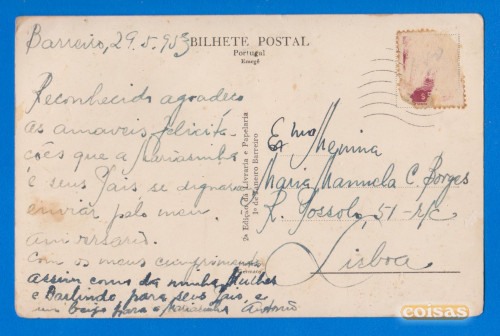 Barreiro, 29.5.953
BILHETE POSTAL
Portugal
Emegê
Reconhecido agradeço
as amaveis felicita-
ções que a Mariasinha
e seus Pais se dignaram
enviar pelo meu
aniversario.
Com os meus cumprimentos
assim como da minha Mulher
e para seus pais, e
um beijo para a Mariasinha António
2ª Edição da Livraria e Papelaria
1º de Janeiro Barreiro
Exma Menina
Maria Manuela C. Borges
R. Possolo, 51-r/c
Lisboa
coisas